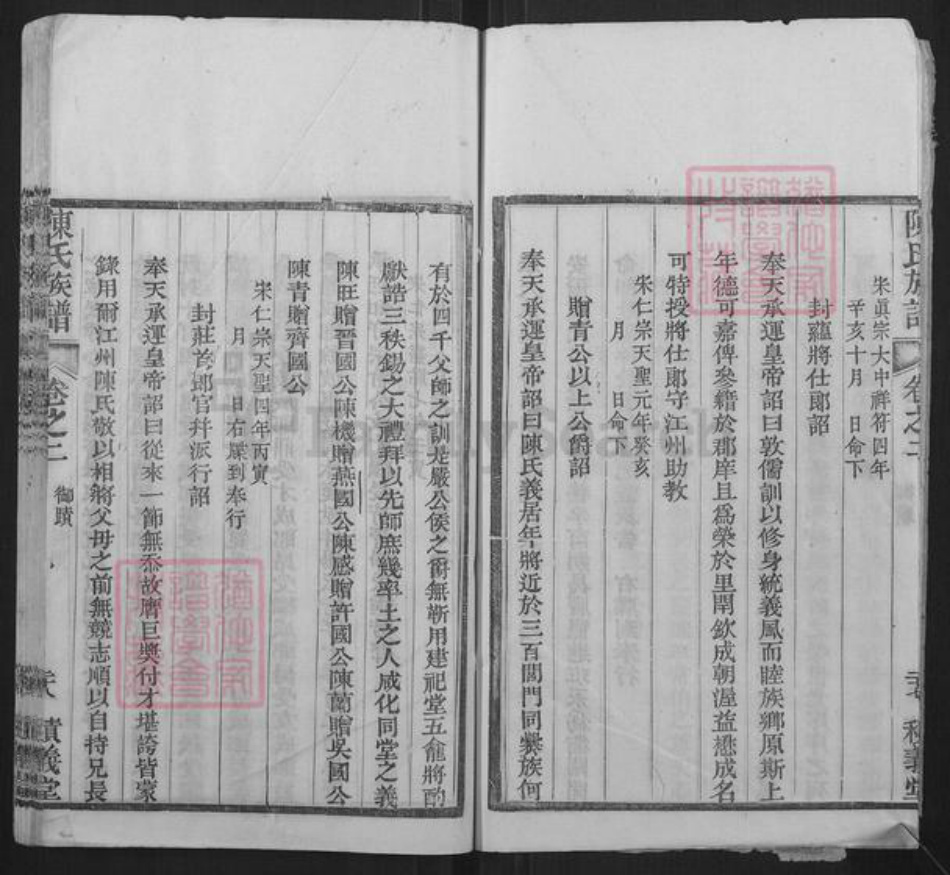 宋眞宗大中祥符四年
辛亥十月　日命下
封蘊將仕郞詔
奉天承運皇帝詔曰敦儒訓以修身統義風而睦族鄉原斯上
年德可嘉俾參籍於郡庠且爲榮於里閈欽成朝渥益懋成名
可特授將仕郞守江州助教
宋仁宗天聖元年癸亥
月　日命下
贈青公以上公爵詔
奉天承運皇帝詔曰陳氏義居年將近於三百闔門同爨族何
有於四千父師之訓是嚴公侯之爾無靳用建祀堂五龕將酌
獻誥三秩錫之大禮拜以先師庶幾率土之人咸化同堂之義
陳旺贈晉國公陳機贈燕國公陳感贈許國公陳蘭贈吳國公
陳青贈齊國公
宋仁宗天聖四年丙寅
月　日右牒到奉行
封莊首郞官幷派行詔
奉天承運皇帝詔曰從來一節無忝故膺巨奬付才堪誇皆蒙
錄用爾江州陳氏敬以相將父毋之前無競志順以自持兄長
陳氏族譜
卷之二
御蹟
積義堂